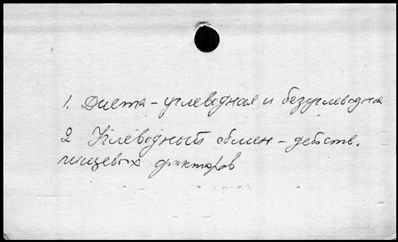 1. Диета - углеводная и безуглеводная
2 Углеводный обмен - действ.
пищевых факторов